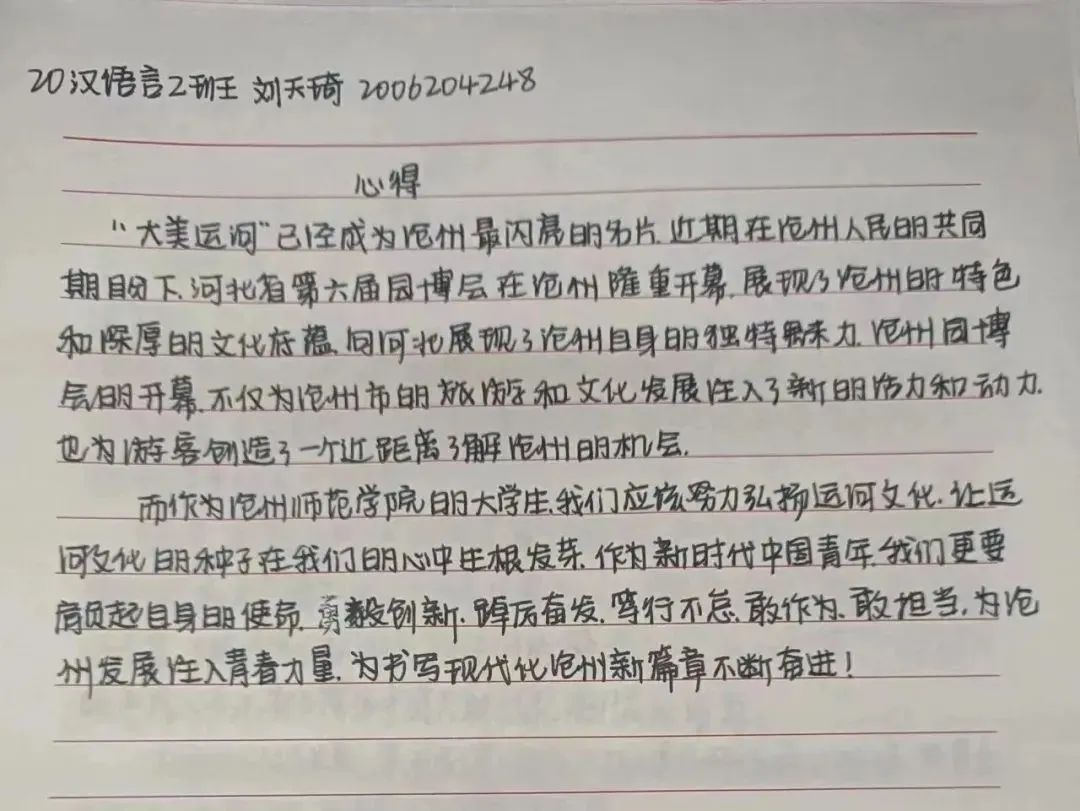 20汉语言2班 刘天琦 2006204248
心得
“大美运河”已经成为沧州最闪亮的名片,近期在沧州人民的共同
期盼下,河北省第六届园博会在沧州隆重开幕,展现了沧州的特色
和深厚的文化底蕴,向河北展现了沧州自身的独特魅力,沧州园博
会的开幕,不仅为沧州市的旅游和文化发展注入了新的活力和动力,
也为游客创造了一个近距离了解沧州的机会.
而作为沧州师范学院的大学生,我们应该努力弘扬运河文化,让运
河文化的种子在我们的心中生根发芽.作为新时代中国青年,我们更要
肩负起自身的使命,勇毅创新,踔厉奋发,笃行不怠,敢作为,敢担当,为沧
州发展注入青春力量,为书写现代化沧州新篇章不断奋进!